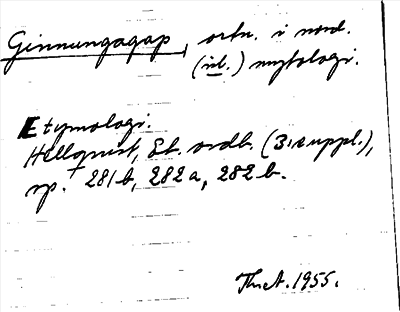 Ginnungagap, ortn. i nord.
(isl.) mytologi.
Etymologi.
Hellquist, Et. ordb. (3:e uppl.),
sp. 281 b, 282 a, 282 b.
1955.